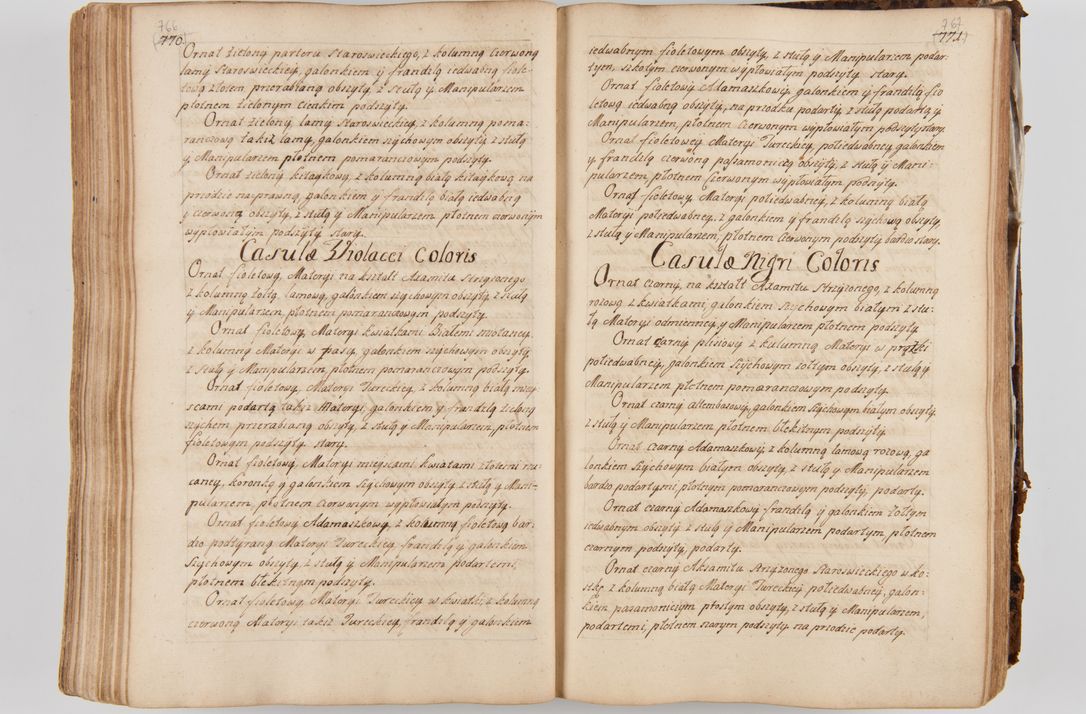 766
(770)
Ornat zielony parteru staroswieckiego, z kolumną czerwoną
lamy staroswieckiey, galonkiem y frandzlą iedwabną fiole-
tową złotem przerabianą obszyty, z stułą y Manipularzem
płotnem zielonym cienkim podszyty.
Ornat zielony lamy staroswieckiey, z kolumną poma-
ranczową takiz lamy, galonkiem szychowym obszyty z stułą
y Manipularzem płotnem pomaranczowym podszyty.
Ornat zielony kitaykowy, z kolumną białą kitaykową na
przodzie naprawny, galonkiem y frandzlą białą iedwabną
y czerwoną obszyty, z stułą y Manipularzem płotnem czerwonym
wypłowiałym podszyty stary.
Casulæ Violacei Coloris
Ornat fioletowy, Materyi na kształt Axamitu strzyzonego
z kolumną żołtą lamową, galonkiem szychowym obszyty, z stułą
y Manipularzem płotnem pomaranczowym podszyty.
Ornat fioletowy Materyi kwiatkami Białemi miotaney
z kolumną Materyi w pasy, galonkiem szychowym obszyty,
z stułą y Manipularzem płotnem pomaranczowym podszyty.
Ornat fioletowy, Materyi Tureckiey, z kolumną białą miey-
scami podartą takiz Materyi, galonkiem y frandzlą zieloną
szychem przerabianą obszyty, z stułą y Manipularzem, płotnem
fioletowym podszyty stary.
Ornat fioletowy, Materyi mieyscami kwiatami złotemi rzu-
caney, koronką y galonkiem szychowym obszyty z stułą y Mani-
pularzem, płotnem czerwonym wypłowiałym podszyty.
Ornat fioletowy Adamaszkowy, z kolumną fioletową bar-
dzo podtyraną Materyi Tureckiey, frandzlą y galonkiem
szychowym obszyty, z stułą y Manipularzem podartemi,
płotnem błekitnym podszyty.
Ornat fioletowy, Materyi Tureckiey w kwiatki, z kolumną
czerwoną Materyi takiz Tureckiey, frandzlą y galonkiem
767
(771)
iedwabnym fioletowym obszyty, z stułą y Manipularzem podar-
tym, szkołym czerwonym wypłowiałym podszyty stary.
Ornat fioletowy Adamaszkowy galonkiem y frandzlą fio
letową iedwabną obszyty, na przodku podarty, z stułą podartą y
Manipularzem, płotnem czerwonym wypłowiałym podszyty stary.
Ornat fioletowey Materyi Tureckiey, połiedwabney, galonkiem
y frandzlą czerwoną passamonicą obszyty, z stułą y Mani-
pularzem płotnem czerwonym wypłowiałym podszyty.
Ornat fioletowy, Materyi połiedwabney, z kolumną białą
Materyi połiedwabney, z galonkiem y frandzlą szychową obszyty,
z stułą y Manipularzem, płotnem czerwonym podszyty bardzo stary.
Casulæ Nigri Coloris
Ornat czarny, na kształt Axamitu strzyzonego, z kolumną
rozową z kwiatkami, galonkiem szychowym białym z stu-
łą Materyi odmienney, y Manipularzem płotnem podszyty
Ornat czarny plisiowy z kulumną Materyi w prążki
połiedwabney, galonkiem szychowym żołtym obszyty, z stułą y
Manipularzem płotnem pomaranczowym podszyty.
Ornat czarny attembasowy, galonkiem szychowym białym obszyty
z stułą y Manipularzem płotnem błekitnym podszyty.
Ornat czarny Adamaszkowy z kolumną lamową rozową, ga
lonkiem szychowym białym obszyty, z stułą y Manipularzem
bardzo podartymi, płotnem pomaranczowym podszyty, podarty.
Ornat czarny Adamaszkowy frandzlą y galonkiem żołtym
iedwabnym obszyty z stułą y Manipularzem podartym, płotnem
czarnym podszyty, podarty.
Ornat czarny Aksamitu strzyzonego staroswieckiego w ko-
stkę z kolumną białą Materyi Tureckiey połiedwabney, galon-
kiem pasamonicznym prostym obszyty, z stułą y Manipularzem,
podartemi, płotnem starym podszyty na przodzie podarty.